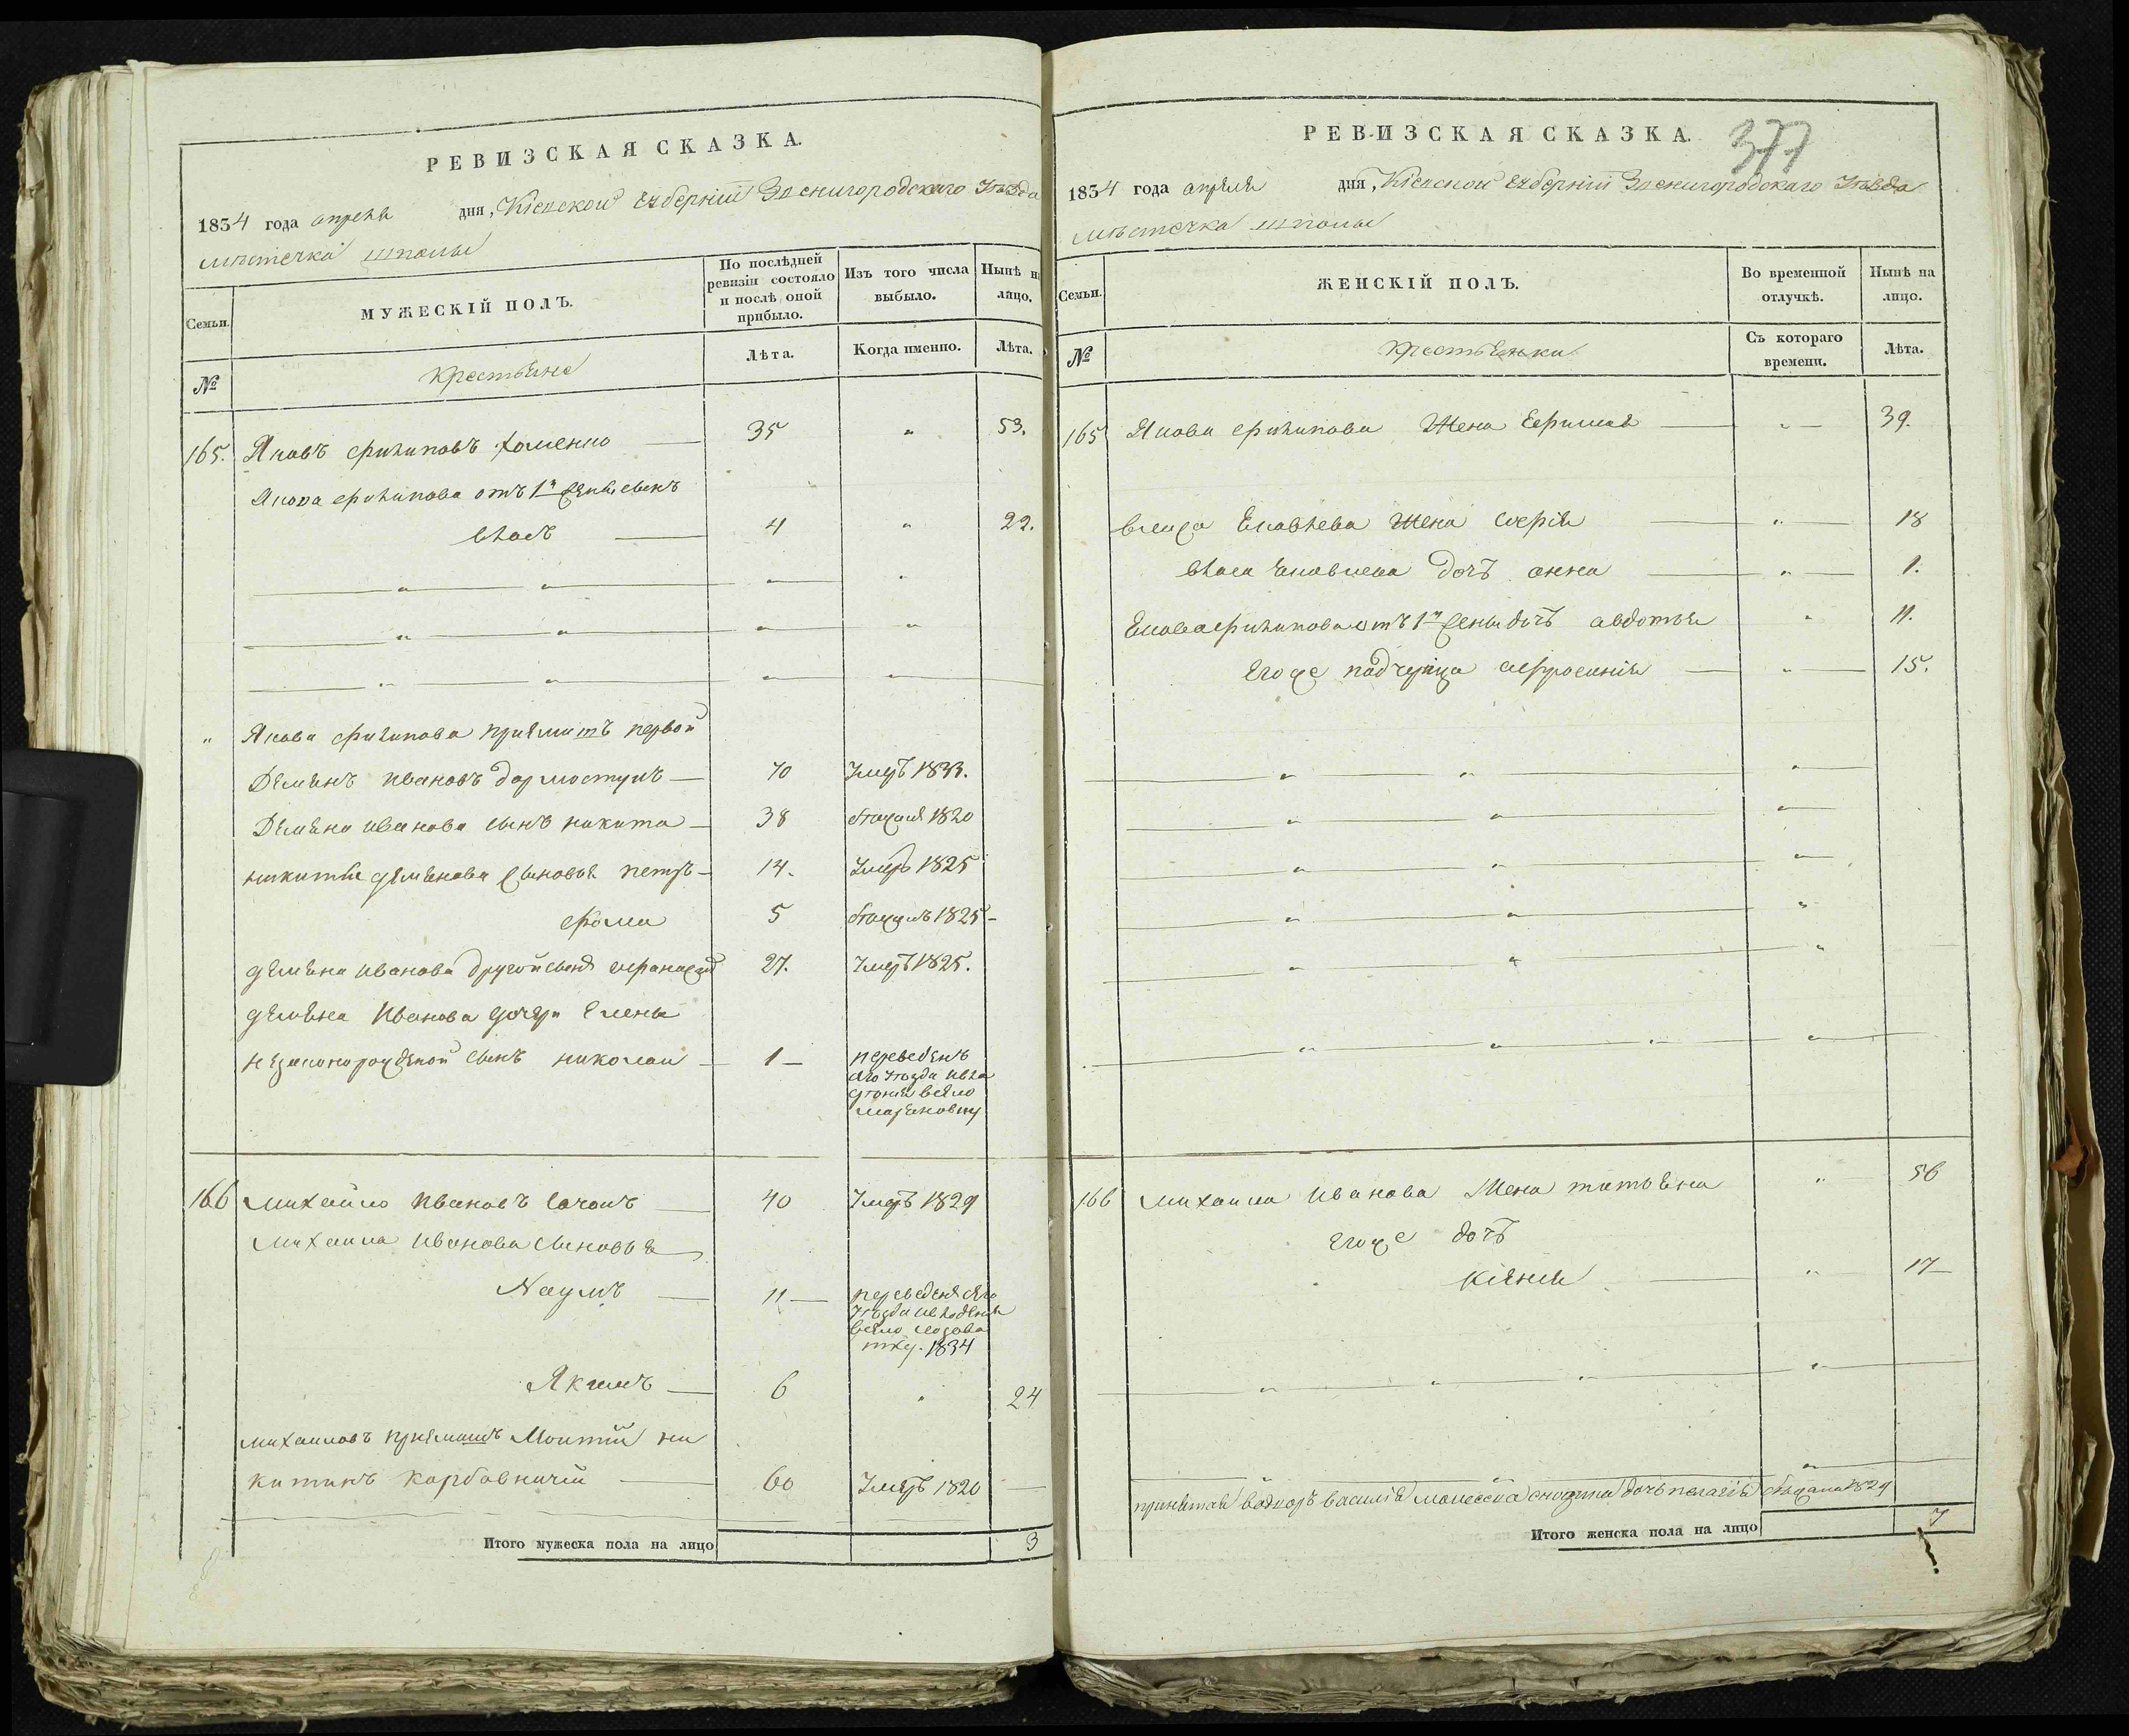 РЕВИЗСКАЯ СКАЗКА.
1834 года апреля дня, Кіевской Губерніи Звенигородскаго Уѣзда
мѣстечка Шполы
Семьи.
МУЖЕСКІЙ ПОЛЪ.
По послѣдней ревизіи состояло и послѣ оной прибыло.
Изъ того числа выбыло.
Нынѣ на лицо.
№
Крестьяне
Лѣта.
Когда именно.
Лѣта.
165. Яковъ Филиповъ Хоменко 35 " 53.
Якова Филипова отъ 1й жены сынъ
Власъ 4 " 22.
" Якова Филипова приямитъ первой
Демьянъ Ивановъ 70 Умеръ 1833.
Демьяна Иванова сынъ Никита 38 1820
Никиты Демьянова сыновья Петръ 14. Умеръ 1825
Фома 5 1825
Демьяна Иванова другой сынъ Афанасий 27. Умеръ 1825.
Демьяна Иванова дочери Елены
незаконорожденой сынъ Николай 1 переведенъ
сего уѣзда
въ село
Марьяновку
166 Михайло Ивановъ 40 Умеръ 1829
Михайла Иванова сыновья
Наумъ 11 переведенъ сего
уѣзда
въ село Лозова
тку. 1834
Якимъ 6 " 24
Михайловъ приямышъ Моитій Ни
китинъ Карбовничій 60 Умеръ 1820
Итого мужеска пола на лицо 3
РЕВИЗСКАЯ СКАЗКА.
377
1834 года апреля дня, Кіевской Губерніи Звенигородскаго Уѣзда
мѣстечка Шполы
Семьи.
ЖЕНСКІЙ ПОЛЪ.
Во временной отлучкѣ.
Нынѣ на лицо.
№
Крестьянки
Съ котораго времени.
Лѣта.
165 Якова Филипова жена " 39.
Власа Яковлева жена Софія " 18
Власа Яковлева дочъ Анна " 1.
Якова Филипова отъ 1й жены дочъ Авдотья " 11.
Егоже падчерица Афросинія " 15.
166 Михайла Иванова жена Татьяна " 56
Егоже дочъ
Кіяна " 17
принятая Василія дочъ Пелагія 1829
Итого женска пола на лицо 7